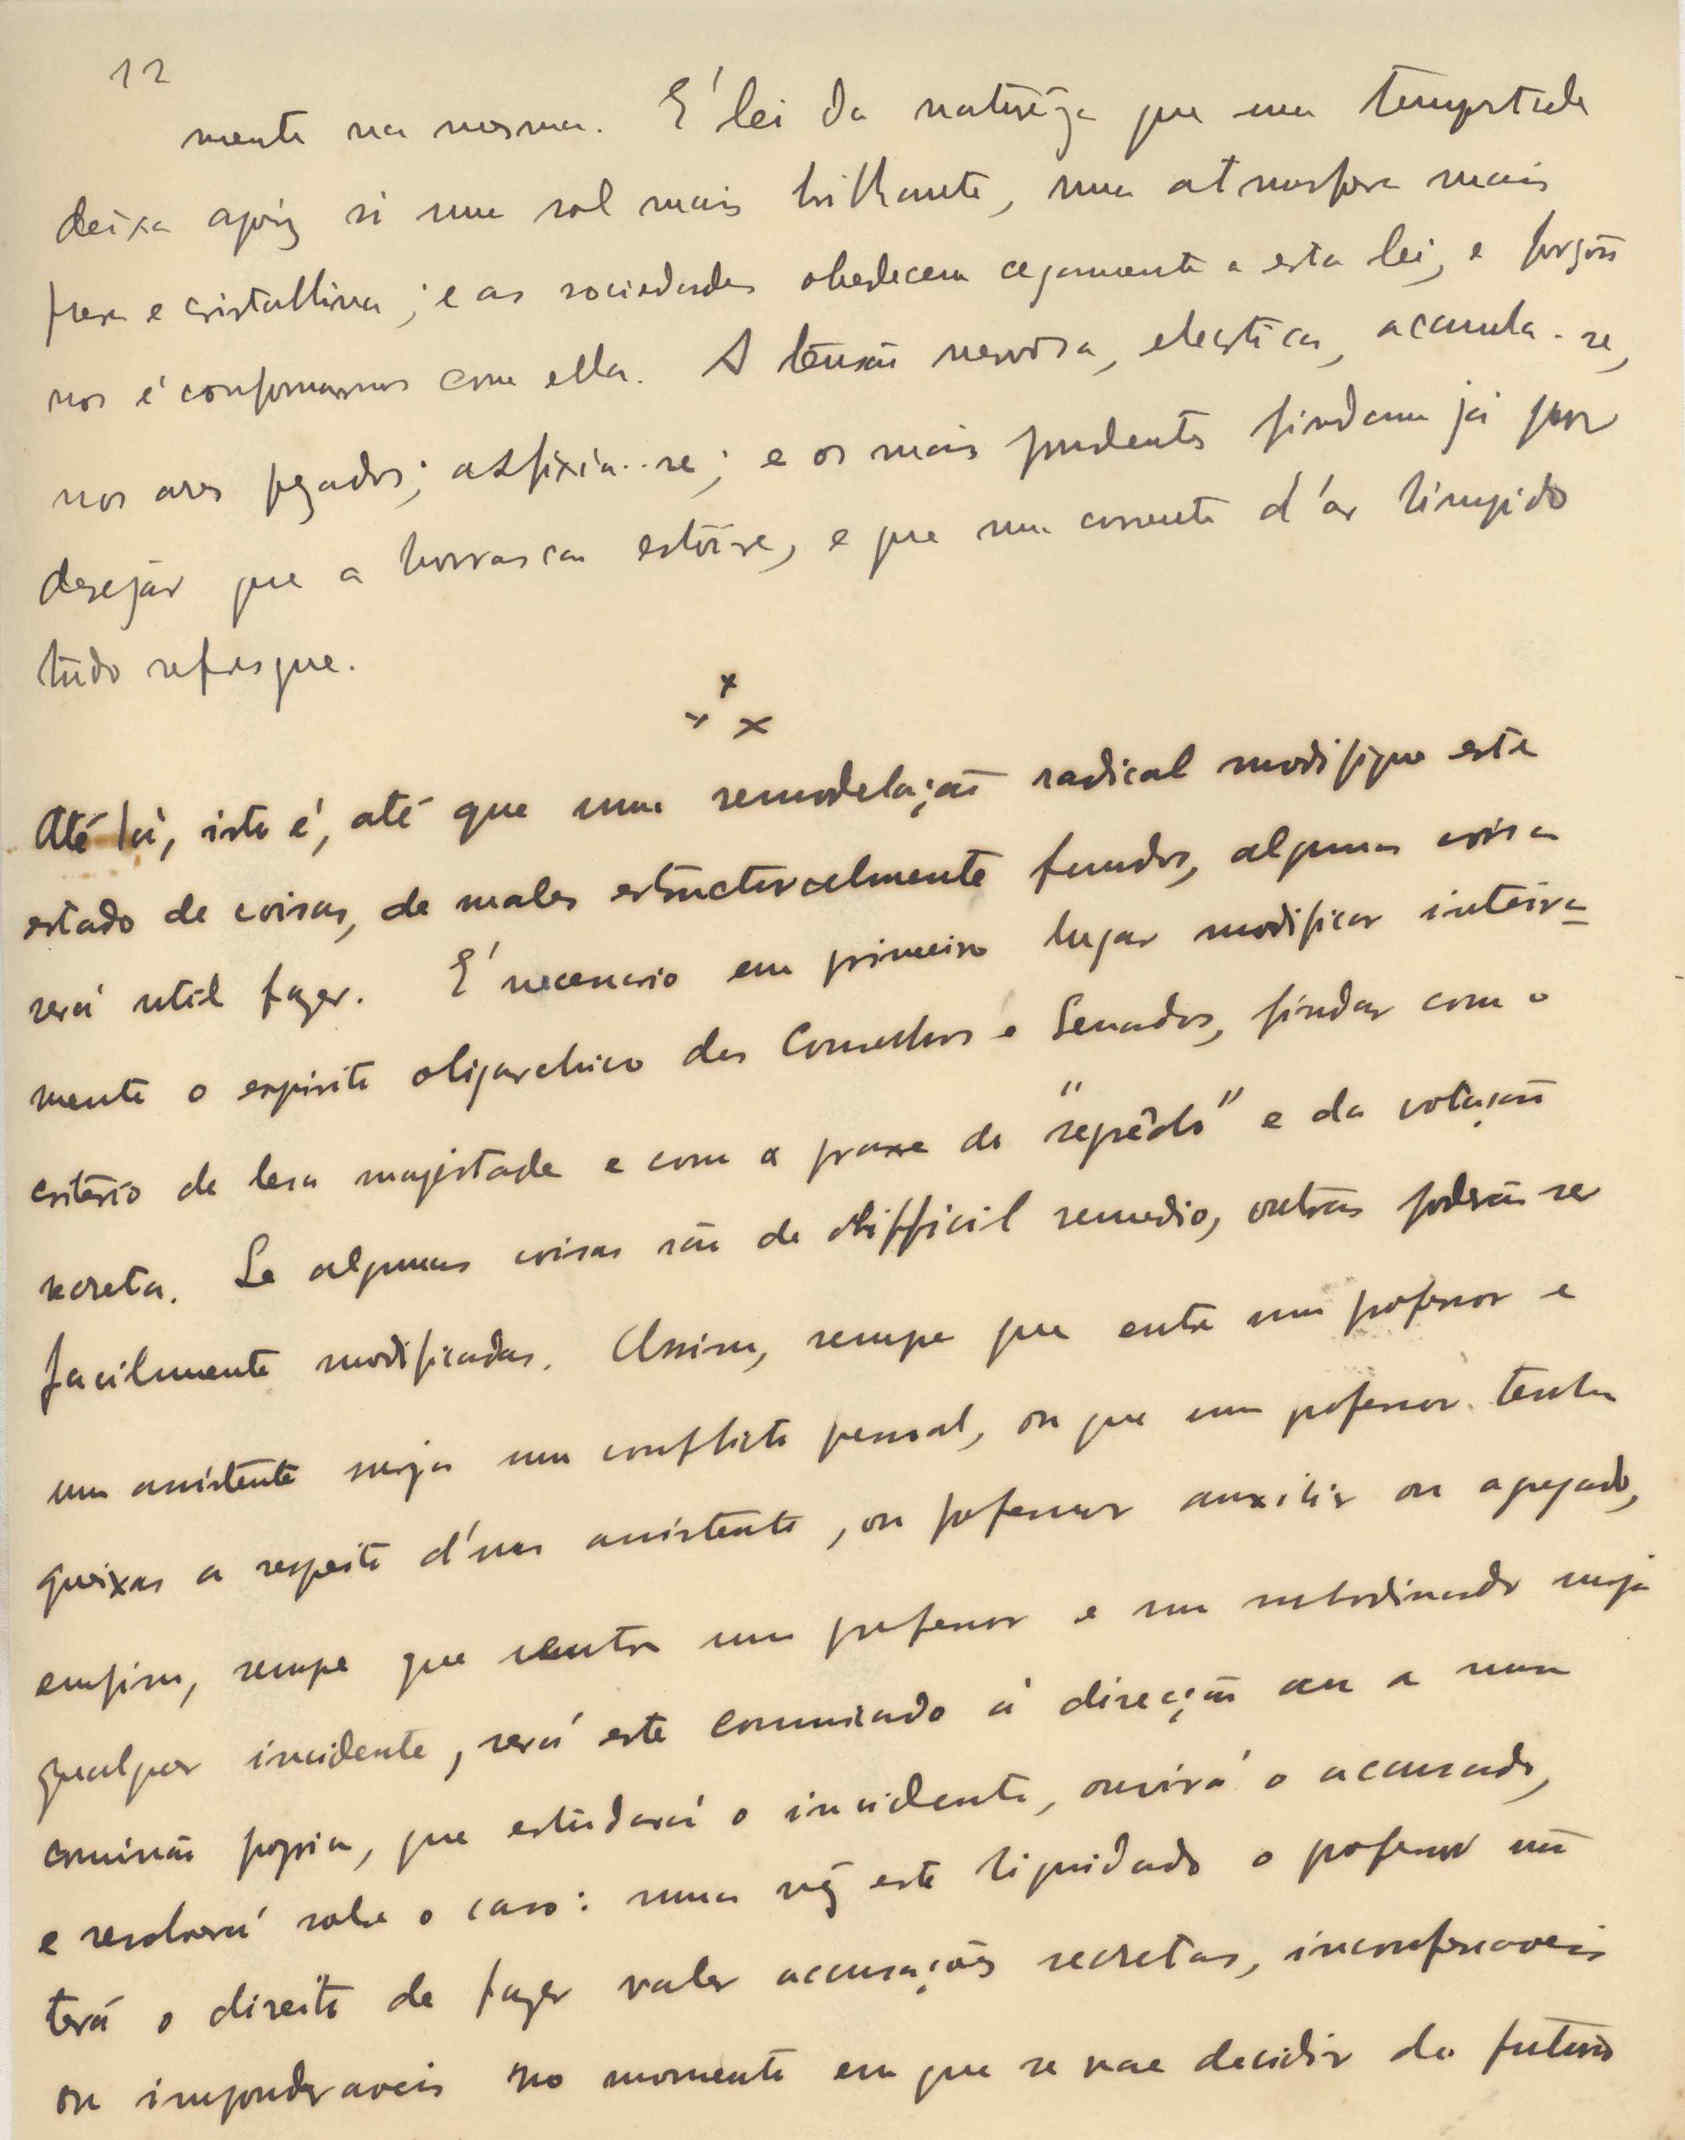 12
mente na mesma. É lei da naturêza que uma tempestade
deixa apóz si um sol mais brilhante, uma atmosfera mais
fresca e cristallina; e as sociedades obedecem cegamente a esta lei, e forçoso
nos é conformarmos com ella. A tensão nervosa, electrica, accumula-se,
nos ares pezados; asfixia-se; e os mais prudentes findam já por
desejar que a borrasca estoire, e que uma corrente d'ar limpido
tudo refresque.
x x x
Até lá, isto é, até que uma remodelação radical modifique este
estado de coisas, de males estructuralmente fundos, alguma coisa
será util fazer. É necessario em primeiro lugar modificar inteira-
mente o espirito oligarchico dos Conselhos e Senados, findar com o
criterio de lesa magestade e com a praxe do "segrêdo" e da votação
secreta. Se algumas coisas são de difficil remedio, outras poderão ser
facilmente modificadas. Assim, sempre que entre um professor e
um assistente surja um conflicto pessoal, ou que um professor tenha
queixas a respeito d'um assistente, ou professor auxiliar ou agregado,
emfim, sempre que entre um professor e um subordinado surja
qualquer incidente, será este communicado á direcção ou a uma
comissão propria, que estudará o incidente, ouvirá o accusado,
e resolverá sobre o caso: uma vêz este liquidado o professor não
terá o direito de fazer valer accusações secretas, inconfessaveis
ou imponderaveis no momento em que se vae decidir do futuro